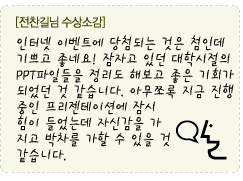 [전찬길님 수상소감]
인터넷 이벤트에 당첨되는 것은 첨인데
기쁘고 좋네요! 잠자고 있던 대학시절의
PPT파일들을 정리도 해보고 좋은 기회가
되었던 것 같습니다. 아무쪼록 지금 진행
중인 프리젠테이션에 잠시
힘이 들었는데 자신감을 가
지고 박차를 가할 수 있을 것
같습니다.